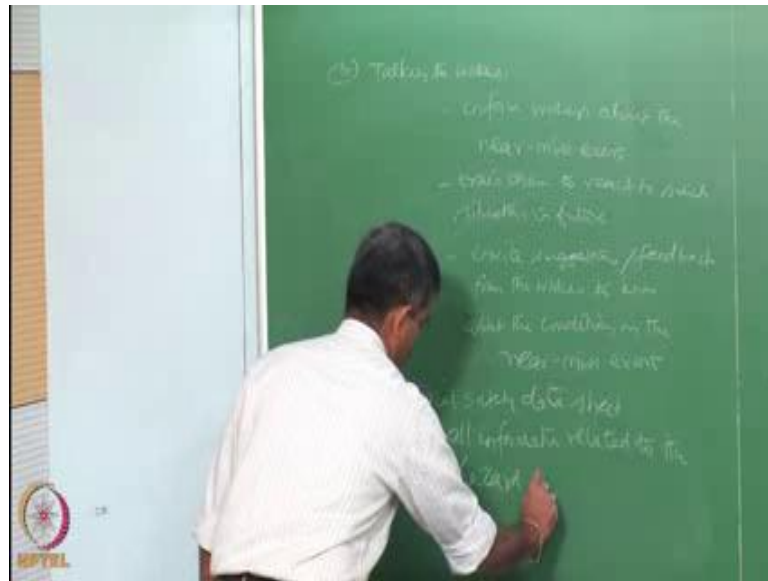 (b) Talking to workers
- inform workers about the
near-miss event
- train them to react to such
situation in future
- invite suggestion / feedback
from the workers to
the condition in the
near-miss event
safety data sheet
all information related to the
NPTEL